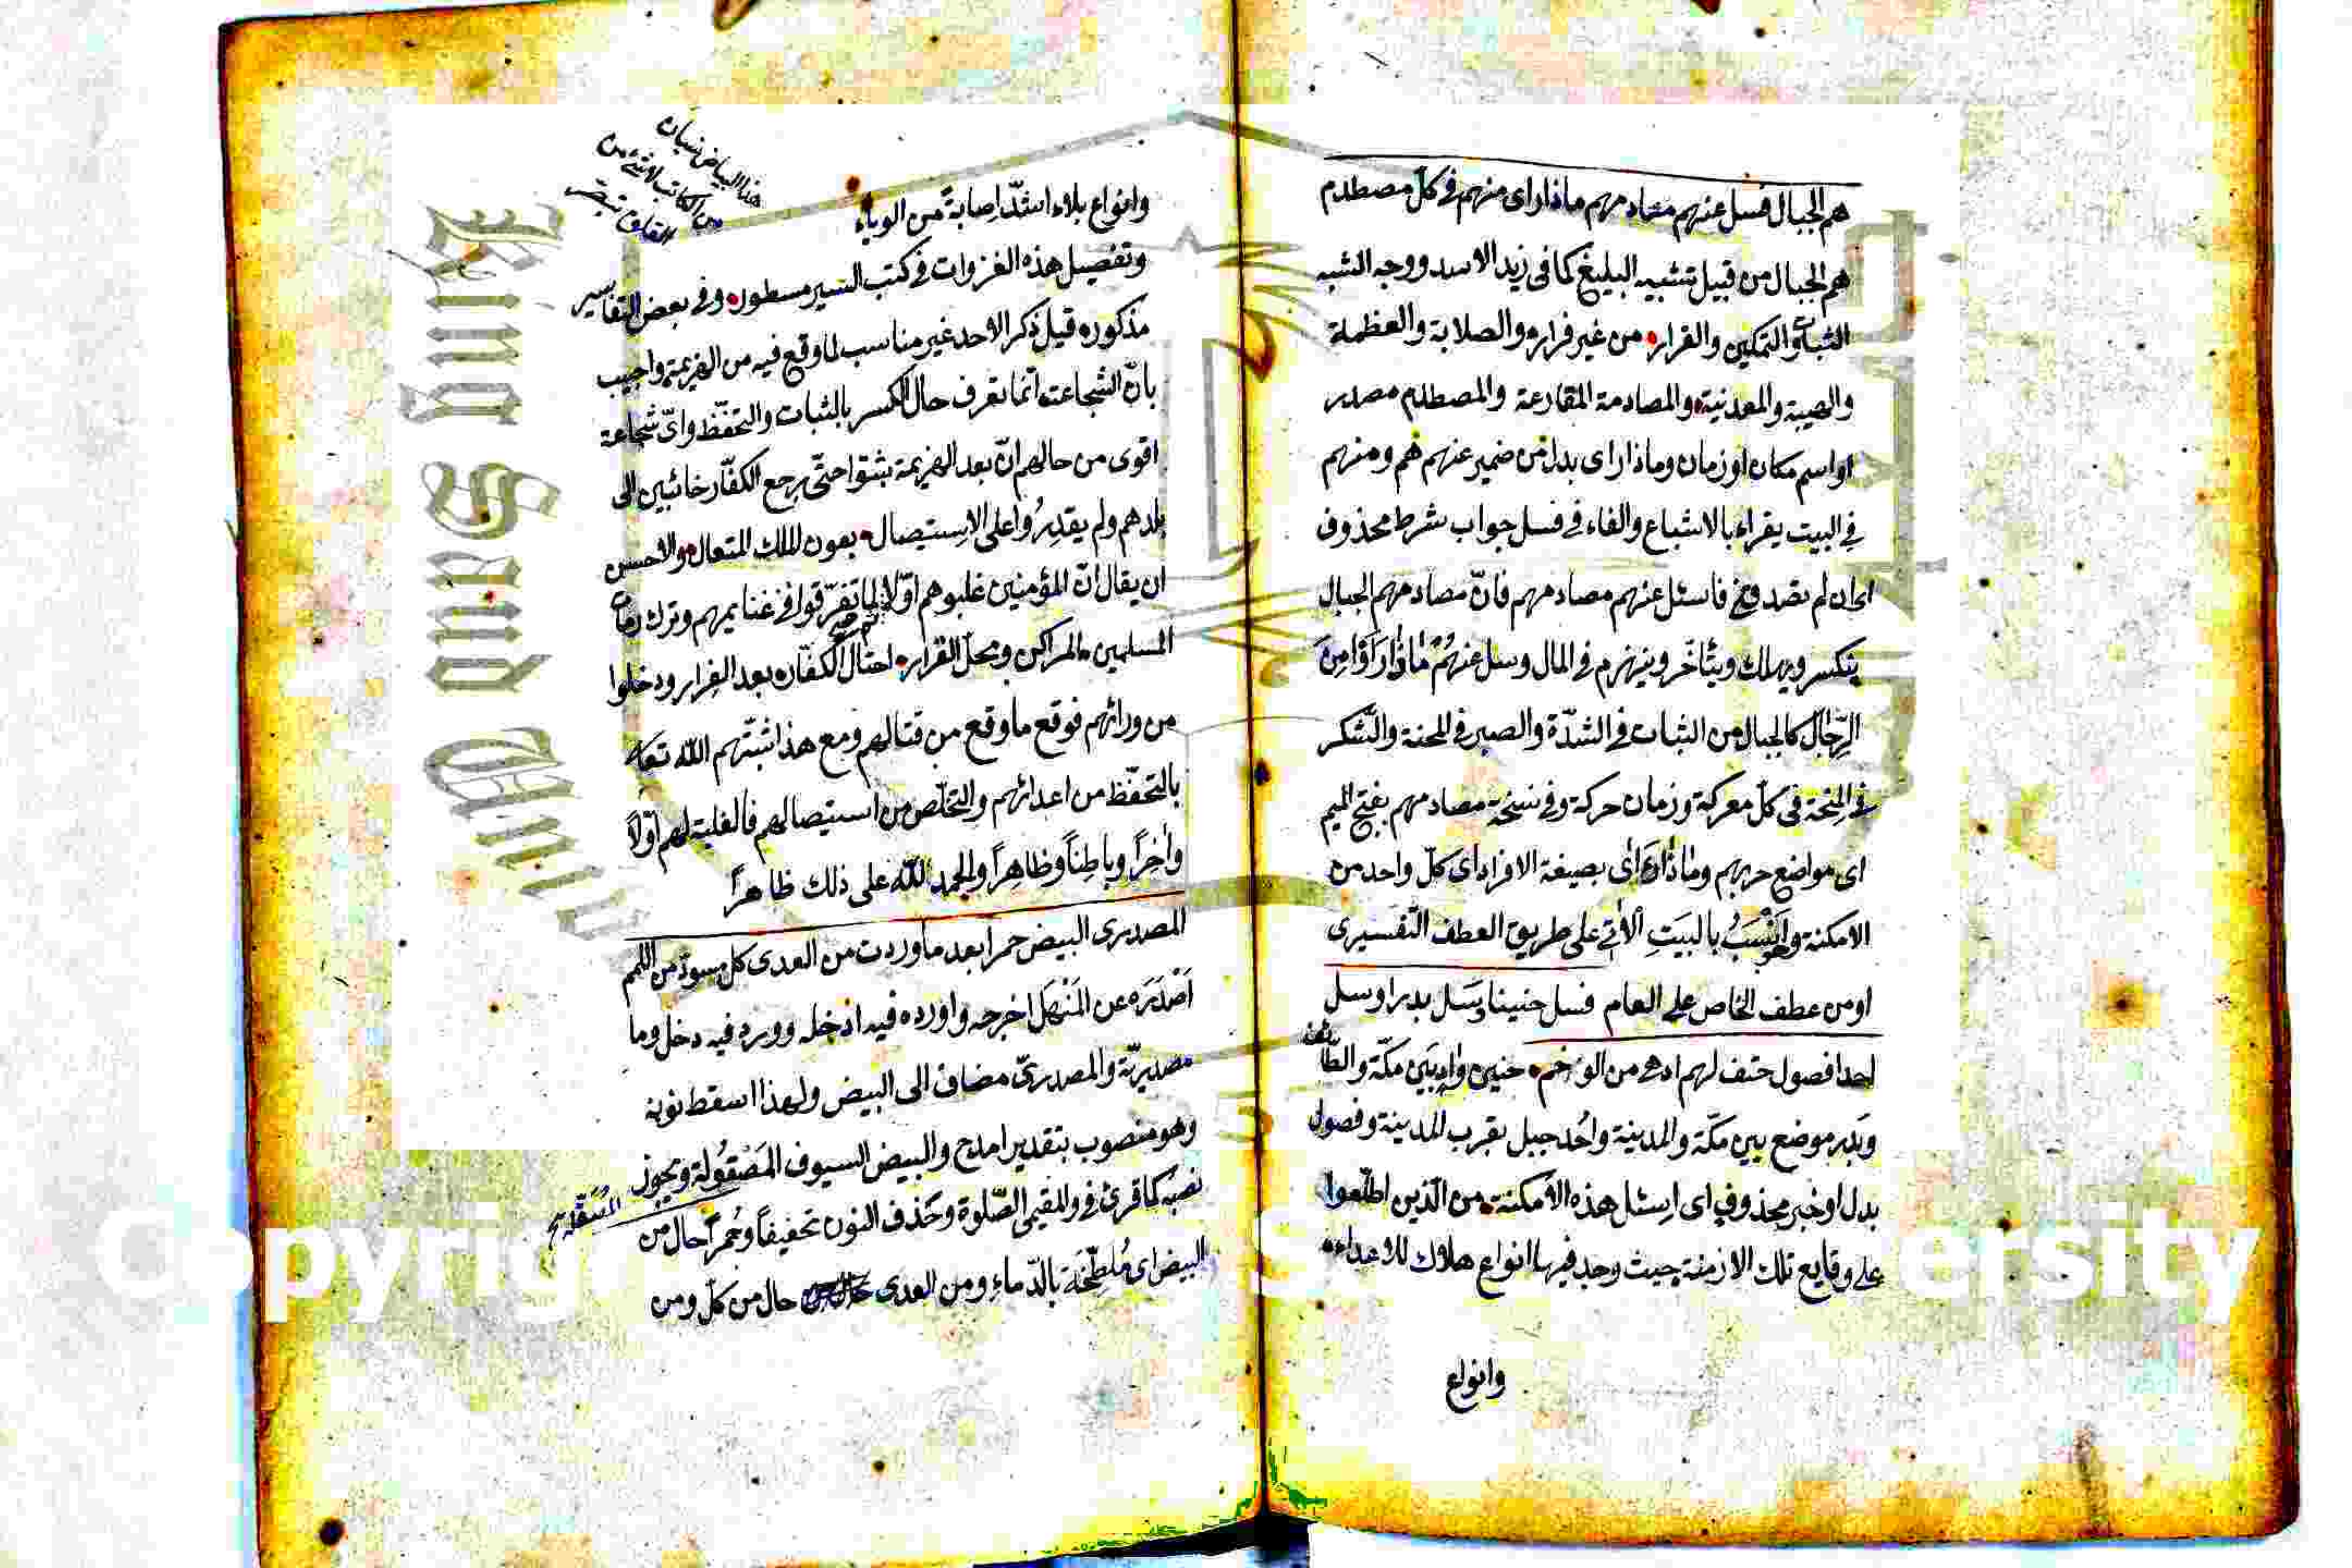 هم الجبال فسل عنهم مصادمهم ماذا راى منهم فى كل مصطدم
هم الجبال من قبيل تشبيه البليغ كما فى زيد الاسد ووجه الشبه
الثبات والتمكين والقرار من غير فرار والصلابة والعظمة
والهيبة والمعدنية والمصادمة المقارعة والمصطدم مصدر
او اسم مكان او زمان وماذا راى بدل من ضمير عنهم هم ومنهم
فى البيت يقراء بالاشباع والفاء فى فسل جواب شرط محذوف
اى ان لم تصدقنى فاسئل عنهم مصادمهم فانّ مصادمهم الجبال
ينكسر ويهلك ويتأخّر وينهزم فى المال وسل عنهُم ماذا رَاَوْا مِنَ
الرّجال كالجبال من الثبات فى الشدّة والصبر فى المحنة والشكر
فى المِنحة فى كلّ معركة وزمان حركة وفى نسخة مصادمهم بفتح الميم
اى مواضع حربهم وماذا راى بصيغة الافراد اى كلّ واحد من
الامكنة وهو اَنْسَبُ بالبَيتِ الآتى على طريق العطف التّفسيرى
او من عطف الخاص على العام فسل حنينا وسَل بدرا وسل
احدا فصول حتف لهم ادهى من الوخم حنين وادٍ بَين مكّة والطّائف
وبَدر موضع بين مكّة والمدينة واُحُد جبل بقرب المدينة وفصول
بدل او خبر محذوف اى اسئل هذه الامكنة من الّذين اطّلعوا
على وقايع تلك الازمنة حيث وجد فيها انواع هلاك للاعداء
وانواع
هذا البياض نسيان
من الكاتب لا شئ من
وانواع بلاء اشدّ اِصابةً من الوباء
وتفصيل هذه الغزوات فى كتب السير مسطور وفى بعض التفاسير
مذكوره قيل ذكر الاحد غير مناسب لما وقع فيه من الهزيمة واجيب
بانّ الشجاعت انّما تعرف حال الكسر بالثبات والتحفّظ واىّ شجاعة
اقوى من حالهم انّ بعد الهزيمة ثبتوا حتّى يرجع الكفّار خائبين الى
بلدهم ولم يقدِرُوا على الاِستيصال بعون الملك المتعال والاحسن
ان يقال انّ المؤمنين غلبوهم اوّلا لما تفرّقوا فى غنايمهم وترك رماة
المسلمين المراكن ومحلّ القرار احتال الكفّار بعد الفرار ودخلوا
من ورائهم فوقع ما وقع من قتالهم ومع هذا ثبّتهم اللّه تعا
بالتحفّظ من اعدائهم والتخلّص من استيصالهم فالغلبة لهم اوّلاً
واٰخِراً وباطِناً وظاهِراً والحمد للّه على ذلك ظاهراً
المصدرى البيض حمرا بعد ما وردت من العدى كل مسود من اللمم
اَصْدَرَه عن المَنْهَل اخرجه واورده فيه ادخله وورد فيه دخل وما
مصدريّة والمصدرىّ مضاف الى البيض ولهذا اسقط نونه
وهو منصوب بتقدير امدح والبيض السيوف المَصْقُولة ويجوز
نصبه كما قرئ فى والمقيمى الصّلوة وحَذف النون تخفيفاً وحُمراً حال من
البيض اى مُلطّخَة بالدّماءِ ومن العدى حال من كلّ ومن